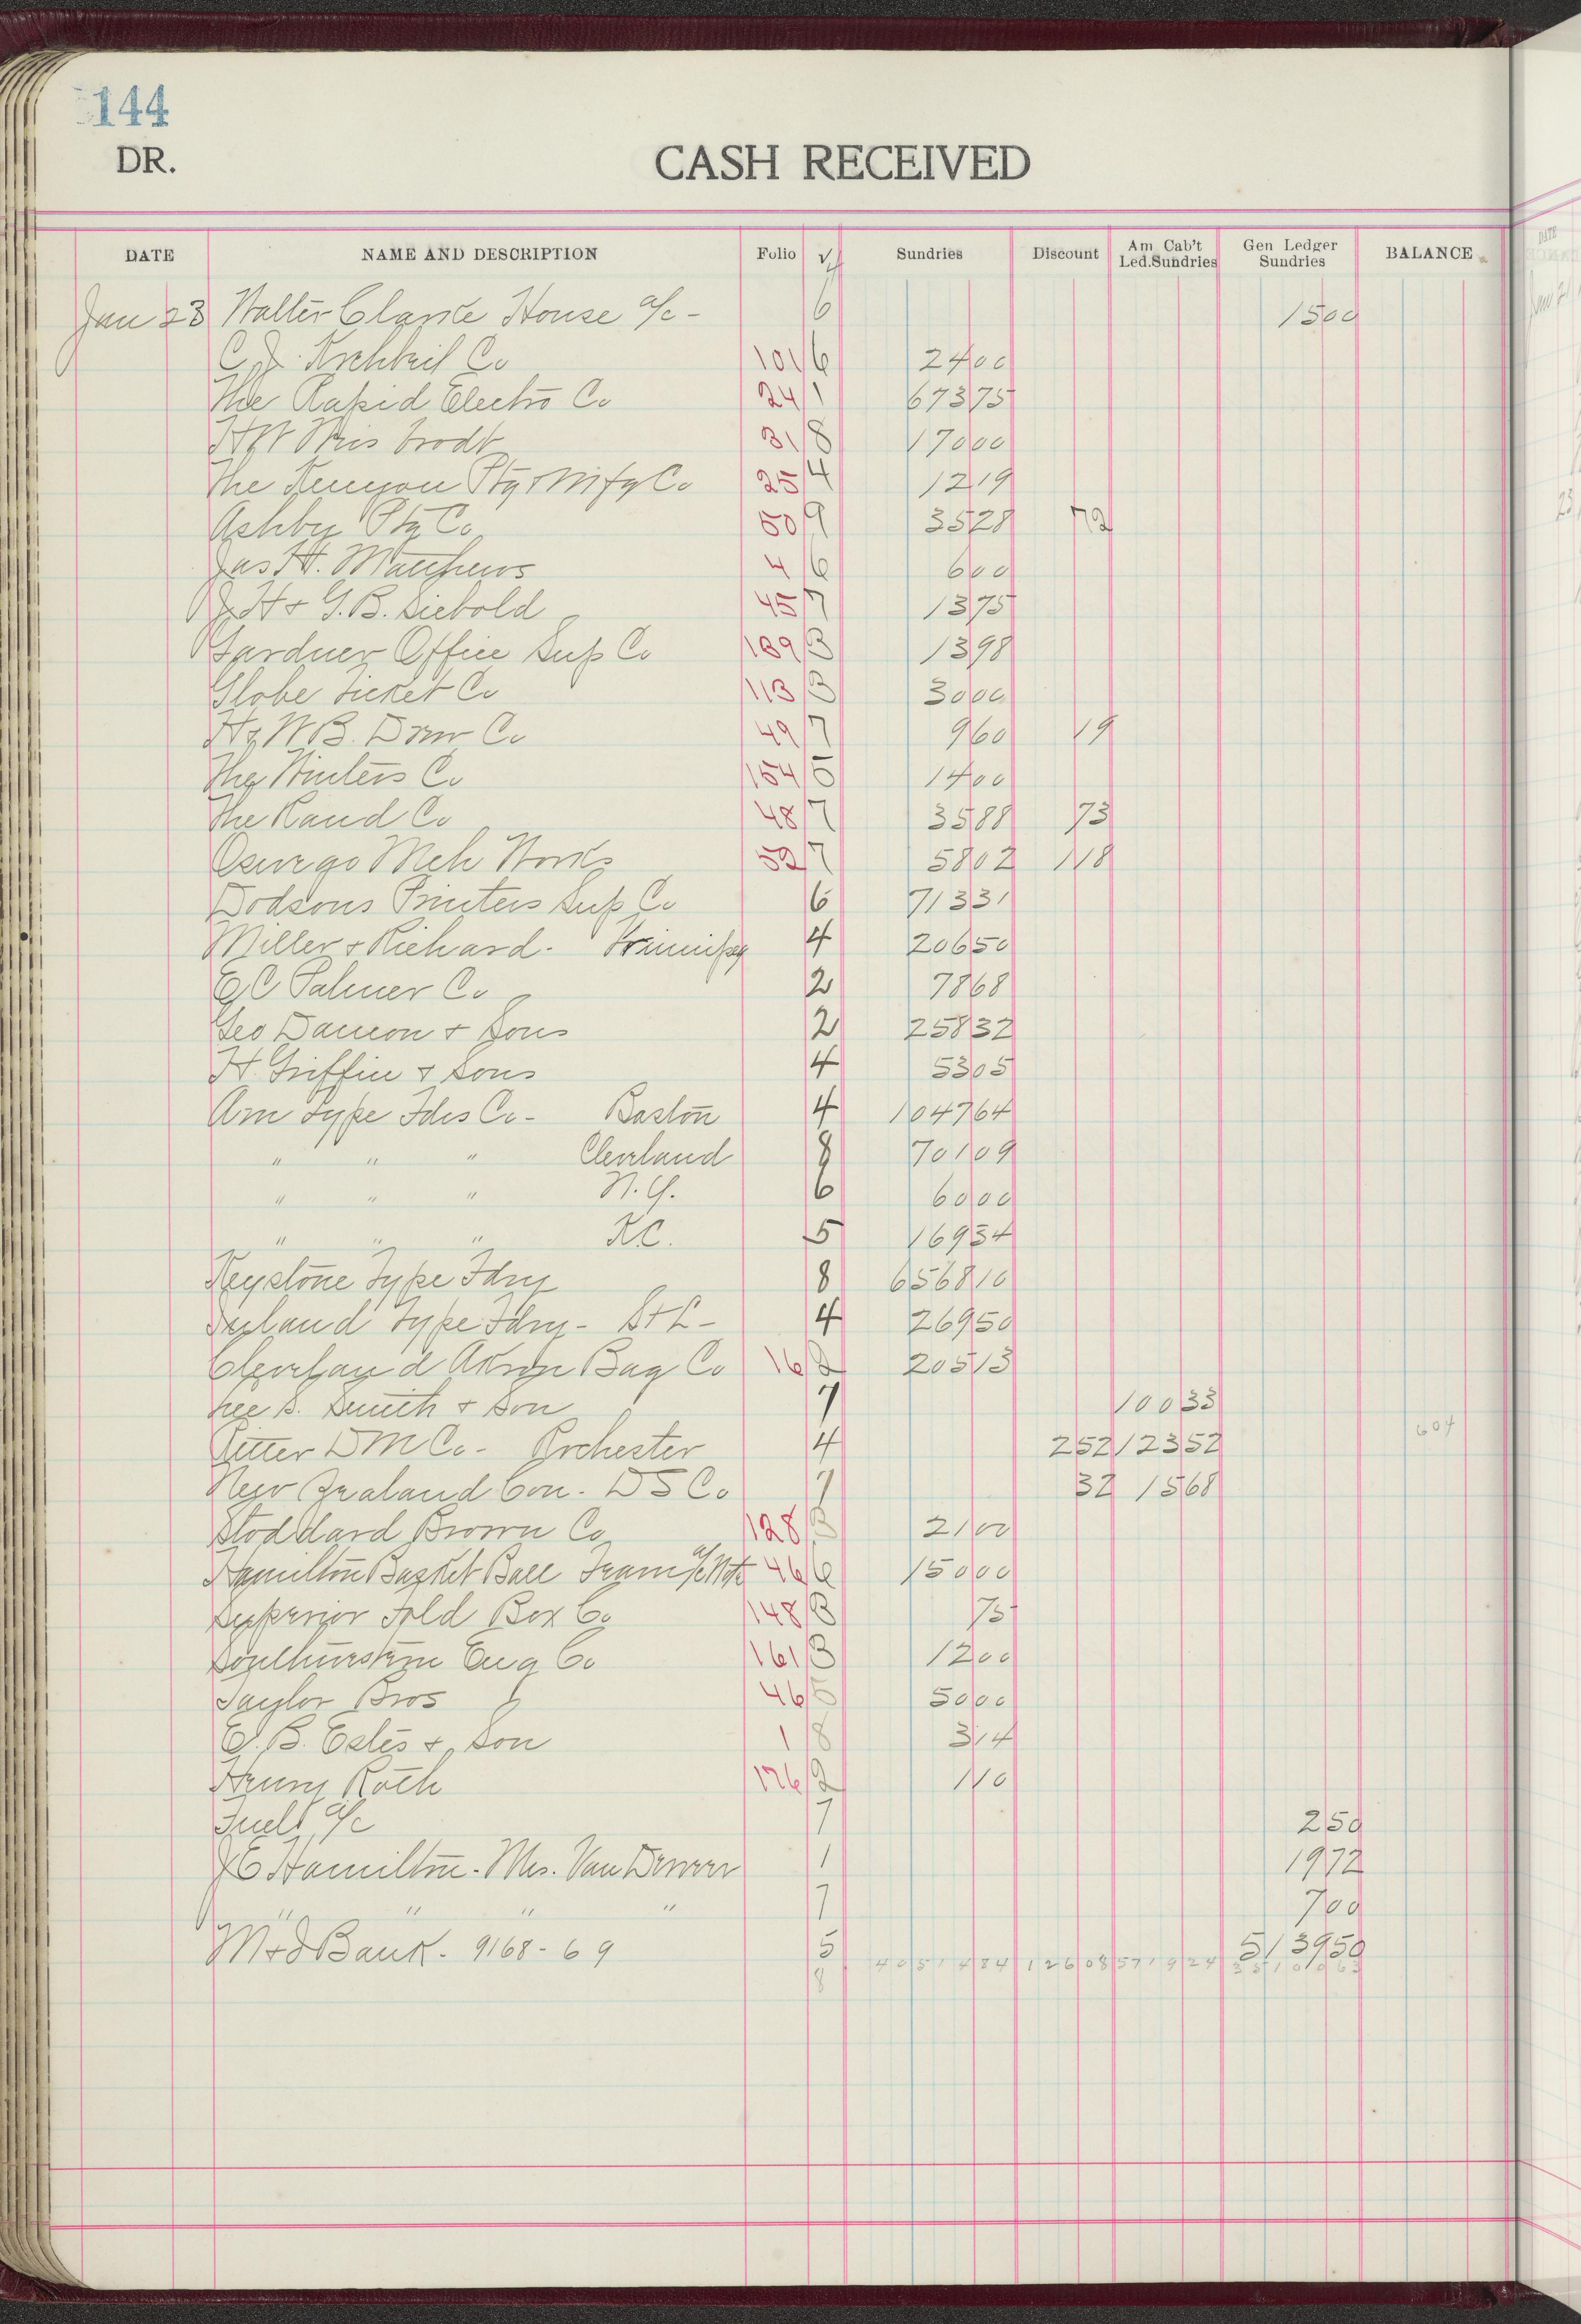 144
DR.
CASH RECEIVED
DATE NAME AND DESCRIPTION Folio √ Sundries Discount Am Cab't Led.Sundries Gen Ledger Sundries BALANCE
Jan 23 Walter Clarke House a/c - 6 1500
C J. Co 101 6 2400
The Rapid Electro Co 24 1 67375
HW 31 8 17000
The Kenyon Ptg & Mfg Co 25 4 1219
Ashby Ptg Co 50 9 3528 72
Jas H. Matthews 4 6 600
J H & G. B. Siebold 45 7 1375
Gardner Office Sup Co 139 3 1398
Globe Ticket Co 113 3 3000
H & W B. Drew Co 49 7 960 19
The Winters Co 154 5 1400
The Rand Co 48 7 3588 73
Oswego Mch Works 52 7 5802 118
Dodsons Printers Sup Co 6 71331
Miller & Richard - Winnipeg 4 20650
E C Palmer Co 2 7868
Geo Damon & Sons 2 25832
H. Griffin & Sons 4 5305
Am Type Fdrs Co - Boston 4 104764
" " " Cleveland 8 70109
" " " N.Y. 6 6000
" " " K.C. 5 16934
Keystone Type Fdry 8 656810
Inland Type Fdry - St L - 4 26950
Cleveland Akron Bag Co 16 2 20513
Lee S. Smith & Son 7 10033
Ritter D M Co - Rochester 4 252 12352 604
New Zealand Con. D S Co 7 32 1568
Stoddard Brown Co 128 3 2100
Hamilton Basket Ball Team a/c Note 46 6 15000
Superior Fold Box Co 148 3 75
Eng Co 161 3 1200
Taylor Bros 46 5 5000
E. B. Estes & Son 1 8 314
Henry Roth 176 2 110
Fuel a/c 7 250
J E Hamilton - Mrs. Van 1 1972
" " " " 7 700
M & I Bank - 9168 - 69 5 513950
8 4051484 12608 571924